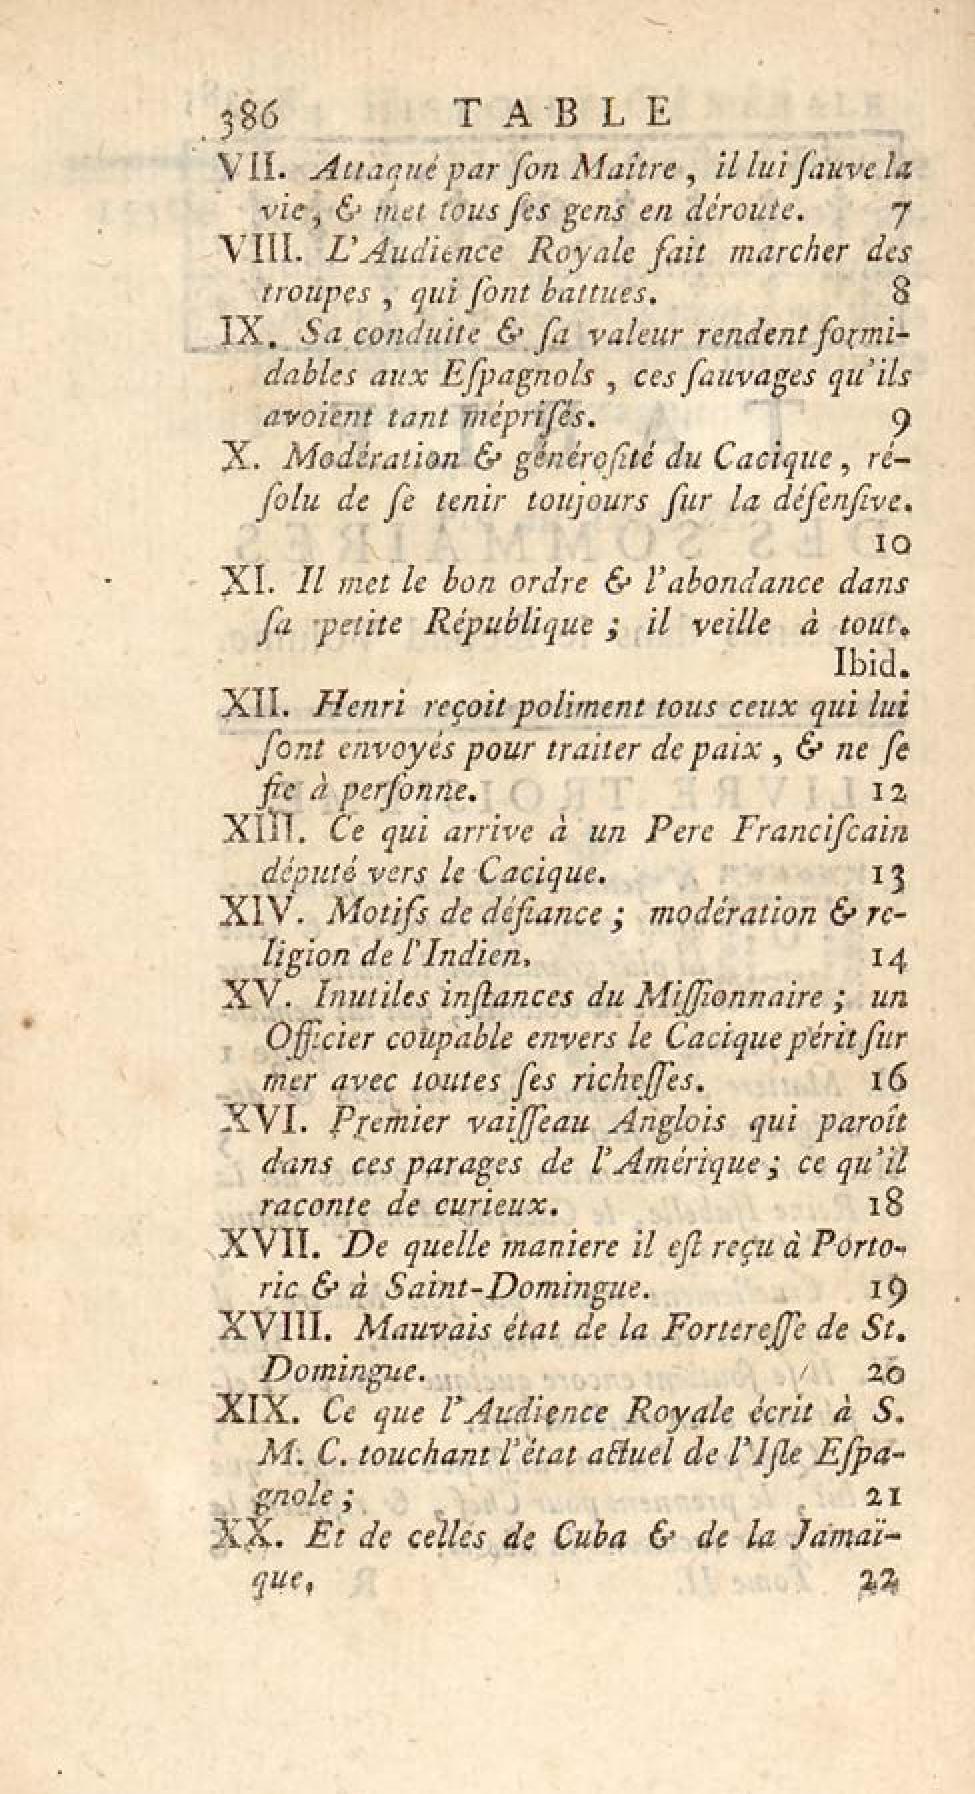 386 TABLE
VII. Attaqué par ſon Maître, il lui ſauve la
vie, & met tous ſes gens en déroute. 7
VIII. L'Audience Royale fait marcher des
troupes, qui ſont battues. 8
IX. Sa conduite & ſa valeur rendent formi-
dables aux Eſpagnols, ces ſauvages qu'ils
avoient tant mépriſés. 9
X. Modération & généroſité du Cacique, ré-
ſolu de ſe tenir toujours ſur la défenſive.
10
XI. Il met le bon ordre & l'abondance dans
ſa petite République ; il veille à tout.
Ibid.
XII. Henri reçoit poliment tous ceux qui lui
ſont envoyés pour traiter de paix, & ne ſe
fie à perſonne. 12
XIII. Ce qui arrive à un Pere Franciſcain
député vers le Cacique. 13
XIV. Motifs de défiance ; modération & re-
ligion de l'Indien. 14
XV. Inutiles inſtances du Miſſionnaire ; un
Officier coupable envers le Cacique périt ſur
mer avec toutes ſes richeſſes. 16
XVI. Premier vaiſſeau Anglois qui paroît
dans ces parages de l'Amérique ; ce qu'il
raconte de curieux. 18
XVII. De quelle maniere il eſt reçu à Porto-
ric & à Saint-Domingue. 19
XVIII. Mauvais état de la Fortereſſe de St.
Domingue. 20
XIX. Ce que l'Audience Royale écrit à S.
M. C. touchant l'état actuel de l'Iſle Eſpa-
gnole ; 21
XX. Et de celles de Cuba & de la Jamaï-
que. 22